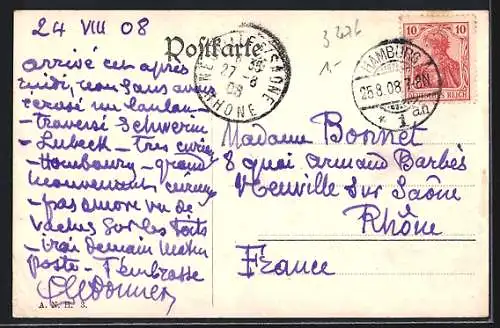 24 VIII 08
Postkarte
3276
1.-
arrivé cet après
midi, nous sans avoir
- traversé Schwerin
- Lubeck - tres curieux
- Hombourg - grand
mouvement
- pas encore vu de
vaches sur les toits
- irai demain matin
poste - T'embrasse
A. N. H. 3.
NEUVILLE S/ SAONE
27 - 8
08
RHÔNE
HAMBURG
25.8.08.7-8N
* 1 an
10 10
DEUTSCHES REICH
Madame Bonnet
8 quai Armand Barbès
Neuville sur Saône
Rhône
France